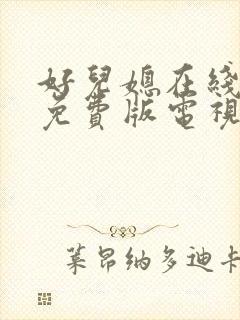 好兒媳在綫
免費版電視
萊昂納多迪卡